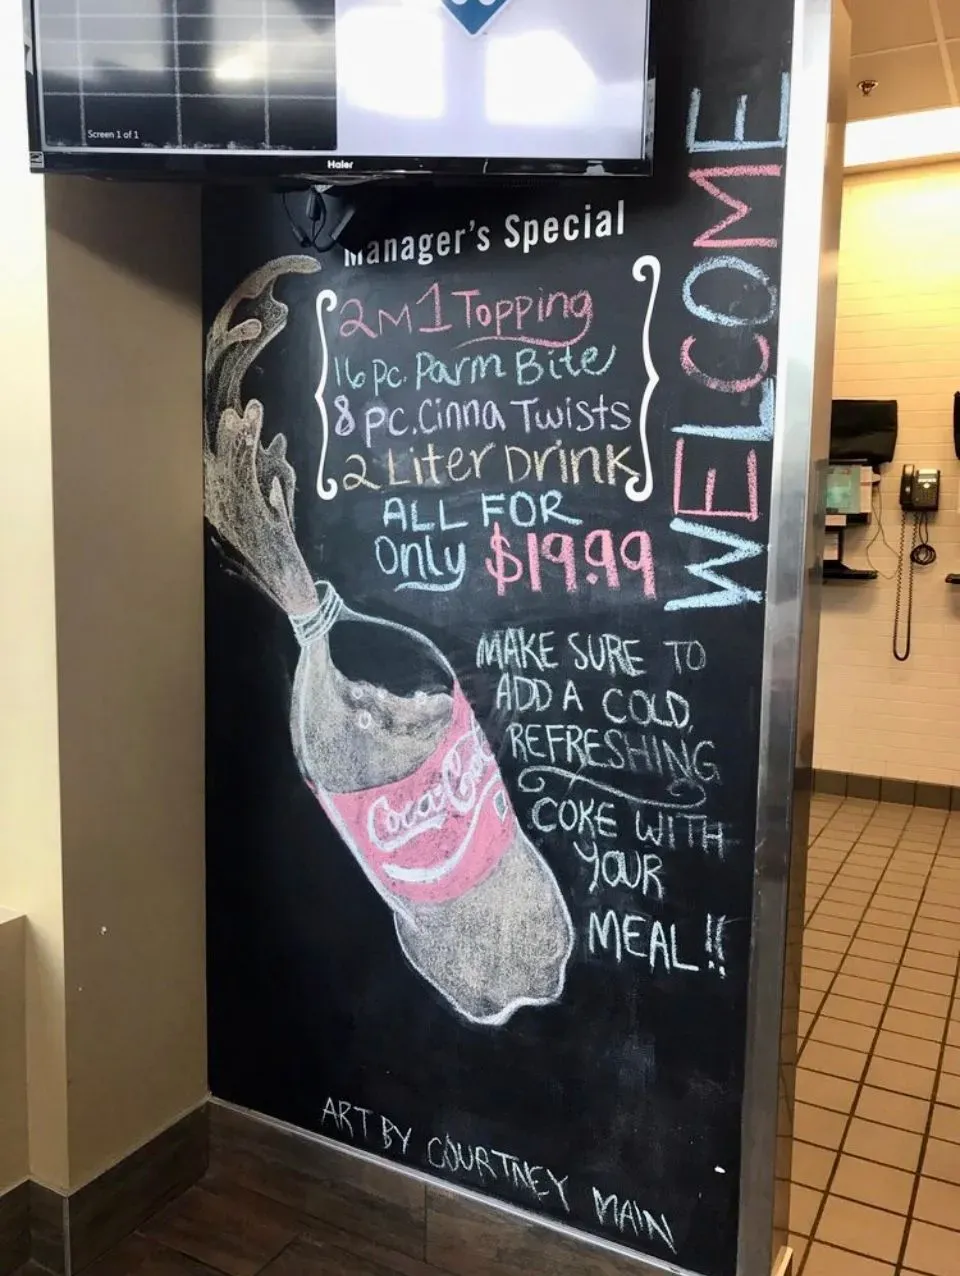 Screen 1 of 1
Haier
Manager's Special
2M 1 Topping
16 pc. Parm Bite
8 pc. Cinna Twists
2 Liter Drink
ALL FOR
Only $19.99
WELCOME
MAKE SURE TO
ADD A COLD,
REFRESHING
COKE WITH
YOUR
MEAL!!
Coca-Cola
ART BY COURTNEY MAIN